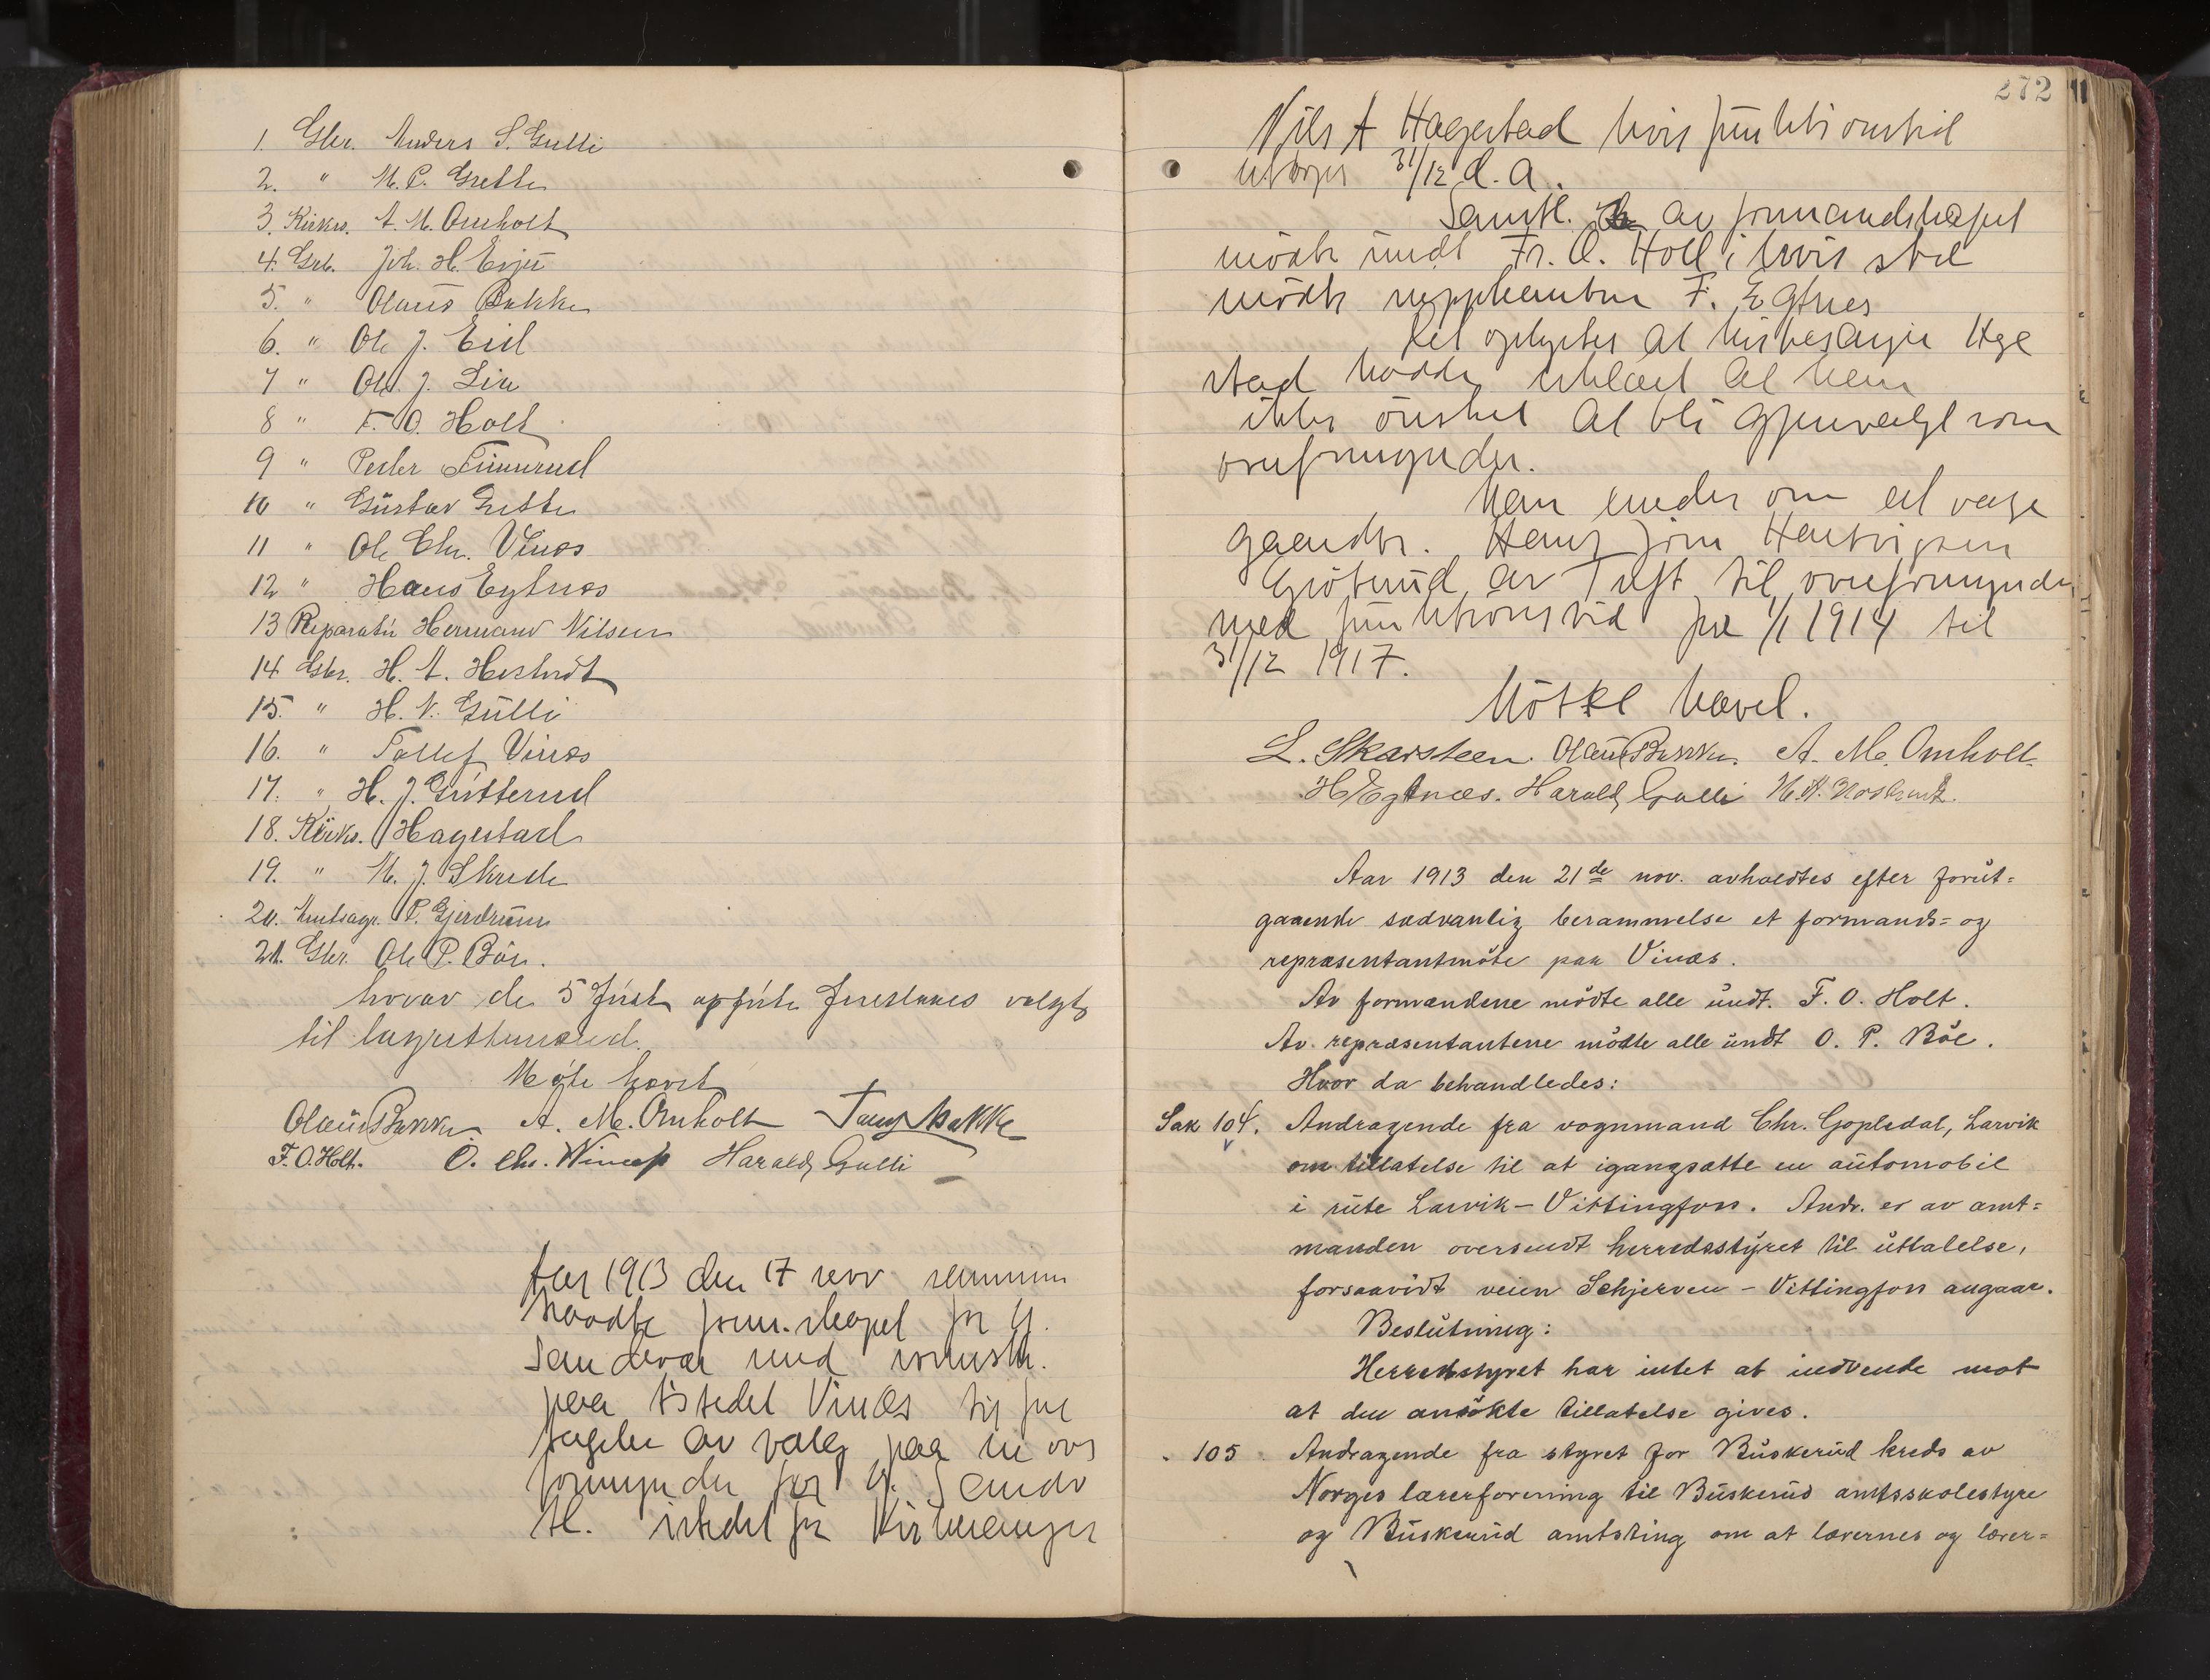 1. Gbr. Anders S. Gulli
2. " M. P. Grette
3. Kirkes. A. M. Omholt
4. Grb. Joh. H. Evju
5. " Olaus Bakke
6. " Ole J. Eid
7 " Ole J. Lie
8 " F. O. Holt
9 " Peder Finnerud
10 " Gustav Grette
11 " Ole Chr. Vinæs
12 " Hans Egtnæs
13 Reparatør Hermand Nilsen
14 Gbr. H. A.
15. " H. N. Gulli
16. " Tollef Vinæs
17. " H. J.
18. Kirkes. Hagestad
19. " M. J. Skrede
20. Amtsagr. P. Gjerdrum
21. Gbr. Ole P. Böe.
hvorav de 5 först opförte foreslaaes valgt
til lagrettemænd.
Möte hævet
Olaus Bakke A. M. Omholt Bakke
F. O. Holt. O. Chr. Winæs Harald Gulli
Aar 1913 den 17 nov sammen
traadte form.skapet for Y.
Sandsvær
paa tstedet Vinæs til fore
tagelse av valg paa en over
formynder for Y. Sandv
H. istedet for Kirkesanger
272
Nils A Hagestad hvis funktionstid
utlöper 31/12 d. a.
Samtl. av formandskapet
mödte undt Fr. O. Holt i hvis sted
mödte H. Egtnes
Det oplystes at kirkesanger Hage
stad hadde uttalt at han
ikke önsket at bli gjenvalgt som
overformynder.
Man enedes om at vælge
gaardbr. Hans Jörn Hartvigsen
av Tuft til overformynder
med funktionstid fra 1/1 1914 til
31/12 1917.
Mötet hævet.
L. Skarsteen. Olaus Bakke. A. M. Omholt
H Egtnæs. Harald Gulli H. A.
Aar 1913 den 21de nov. avholdtes efter forut=
gaaende sædvanlig berammelse et formands= og
repræsentantmöte paa Vinæs.
Av formændene mödte alle undt. F. O. Holt.
Av repræsentantene mödte alle undt O. P. Böe.
Hvor da behandledes:
Sak 104. Andragende fra vognmand Chr. Goplsdal, Larvik
om tillatelse til at igangsætte en automobil
i rute Larvik – Vittingfoss. Andr. er av amt=
manden oversendt herredsstyret til uttalelse,
forsaavidt veien Schjerven – Vittingfoss angaar.
Beslutning:
Herredsstyret har intet at indvende mot
at den ansökte tillatelse gives.
" 105 Andragende fra styret for Buskerud kreds av
Norges lærerforening til Buskerud amtsskolestyre
og Buskerud amtsting om at lærernes og lærer=